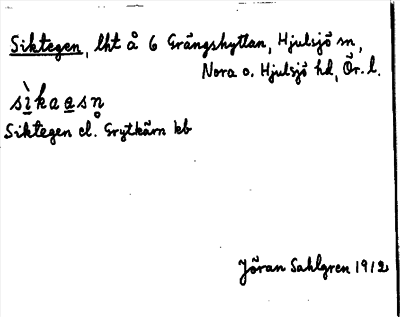 Siktegen, lht å 6 Grängshyttan, Hjulsjö sn,
Nora o. Hjulsjö hd, Ör. l.
sìkaasn
Siktegen el. Grytkärn kb
Jöran Sahlgren 1912